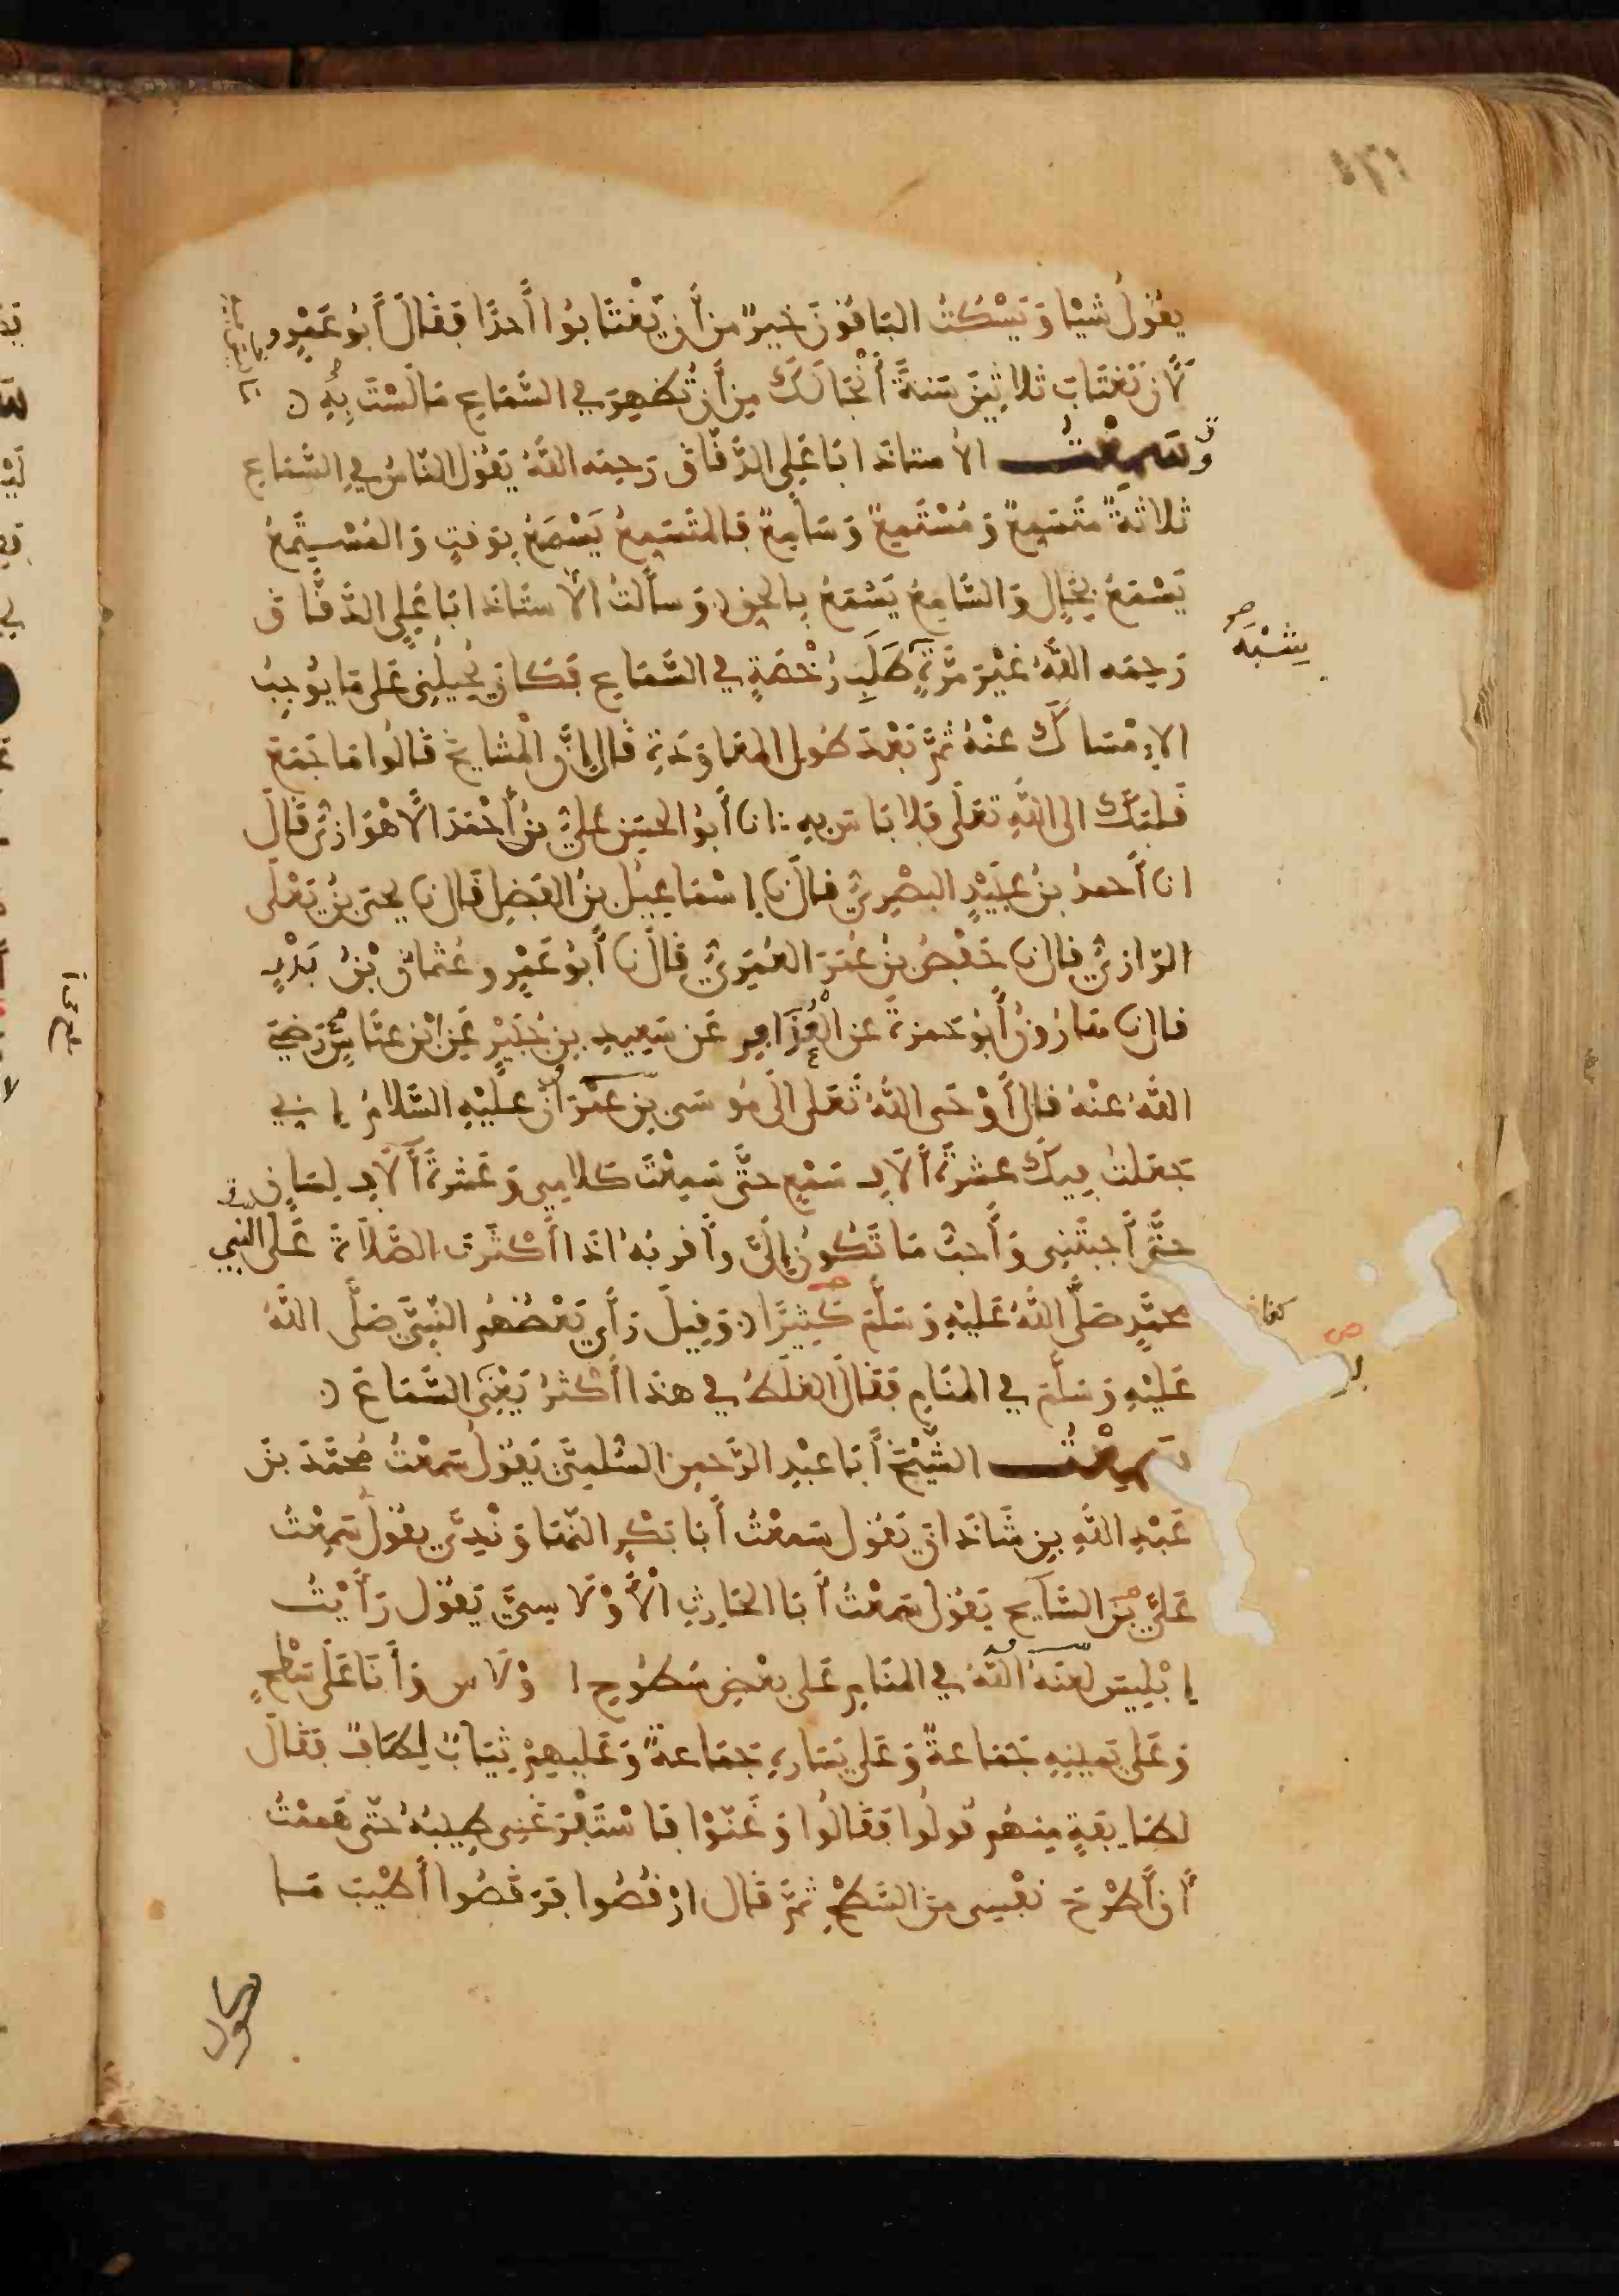 يقُولُ شَيْا وَيَسْكُتُ البَاقُونَ خَيرٌ من أَن يَغْتَابُوا أَحدًا فَقَالَ أَبُو عَمْرٍو
لَأن تَغتَابَ ثلاثِينَ سَنةً أَنْجَا لَكَ مِن أَن تُظهِرَ في السَّمَاعِ مَا لَسْتَ بِهِ
وَسَمِعْتُ الأستاذَ ابَا عَلِي الدَّقَّاقَ رَحِمَه اللهُ يَقُول النَّاسُ في السَّمَاعِ
ثلاثةٌ مُتَسَمِعٌ وَمُسْتَمِعٌ وَسَامِعٌ فالمُتَسَمِعُ يَسْمَعُ بِوَقتٍ وَالمُسْتَمِعُ
يَسْمَعُ بحَالٍ وَالسَّامِعُ يَسْمَعُ بالحقِ وَسأَلتُ الأُستَاذَ ابَا عَلِي الدَّقَّاق
رَحِمَه اللهُ غَيْرَ مَرَّةٍ طَلَبَ رُخْصَةٍ في السَّمَاعِ فَكَانَ يُحِيلُنِي عَلى مَا يُوجِبُ
الإِمْسَاكَ عَنْهُ ثُمَّ بَعْدَ طُولِ المعَاوَدَةِ قال إِنَّ المشايخَ قَالُوا مَا جَمَعَ
قَلبَكَ الى اللهِ تَعَلَى فلا بَاسَ بِهِ انا أَبُو الحسَنِ عَلِيُّ بنُ أَحْمَدَ الأَهْوَازِيُّ قَالَ
انا أَحمدُ بنُ عُبَيْدٍ البصْرِيُّ قالَ نا إِسْمَاعِيلُ بنُ الفَضلِ قَالَ نا يحيَى بنُ يَعْلَى
الرّازيُّ قال نا حَفْصُ بنُ عُمَرَ العُمَرِيُّ قَالَ نا أَبُو عَمْرٍو عُثمَانُ بْنُ بَدْرٍ
قال نا هَارُونُ أَبُو حَمزةَ عن الغُزَافِرِ عَن سَعِيدِ بنِ جُبَيْرٍ عَنِ ابْنِ عبَّاسٍ رَضِيَ
اللهُ عنْهُ قال أَوْحَى اللهُ تَعَلى الَى مُوسَى بنِ عِمْرَانَ عَلَيْهِ السَّلامُ إِنِي
جَعَلتُ فِيكَ عشَرةَ أَلَافِ سَمْعٍ حتَّى سَمِعْتَ كَلَامِي وَعَشْرةَ أَلَافِ لسَانٍ
حتَّى أَجبتَنِي وَأَحبُّ مَا تَكُونُ إِلَيَّ وأَقربُهُ اذَا أَكْثَرتَ الصَّلَاةَ عَلى النَّبِي
محمَّدٍ صَلَّى اللهُ عَلَيْهِ وَسَلَّمَ كَثِيرًا وَقِيلَ رَأَي بَعْضُهُم النَّبِيَّ صَلَّى اللهُ
عَلَيْهِ وَسَلَّمَ في المنَامِ فَقَالَ الغَلَطُ في هَذَا أَكْثرُ يَعْنِي السَّمَاعَ
سَمِعْتُ الشَّيْخَ أَبَا عبْدِ الرَّحمنِ السُّلَمِيَّ يَقُولُ سَمعْتُ مُحَمَّدَ بنَ
عَبْدِ اللهِ بنِ شَاذَانَ يَقُول سَمعْتُ أَبَا بَكْرٍ النَّهَاوَنْدِيَّ يقُولُ سَمِعْتُ
عَلِيَّ بنَ السَّايحِ يَقُولُ سَمعْتُ أَبَا الحَارِثِ الأَوْلَاسِيَّ يَقُولُ رَأَيْتُ
إِبْلِيسَ لَعَنَهُ اللهُ في المنَامِ عَلى بعْضِ سُطُوحِ اوْلَاس وَأَنَا عَلَى سَطْحٍ
وَعَلى يَمِينِهِ جَمَاعةٌ وَعَلى يَسَارهِ جَمَاعةٌ وَعَلَيهِمْ ثِيَابٌ لِطَافٌ فَقَالَ
لطَايفَةٍ مِنهُم قُولُوا فَقَالُوا وَغَنَّوْا فَاسْتَفْرَغَنِي طِيبُهُ حَتَّى هَممْتُ
أَن أَطْرَحَ نَفْسِي مِنَ السَّطْحِ ثمَّ قَال ارْقُصُوا فرَقَصُوا أَطْيَبَ مَا
يشبه
يكون